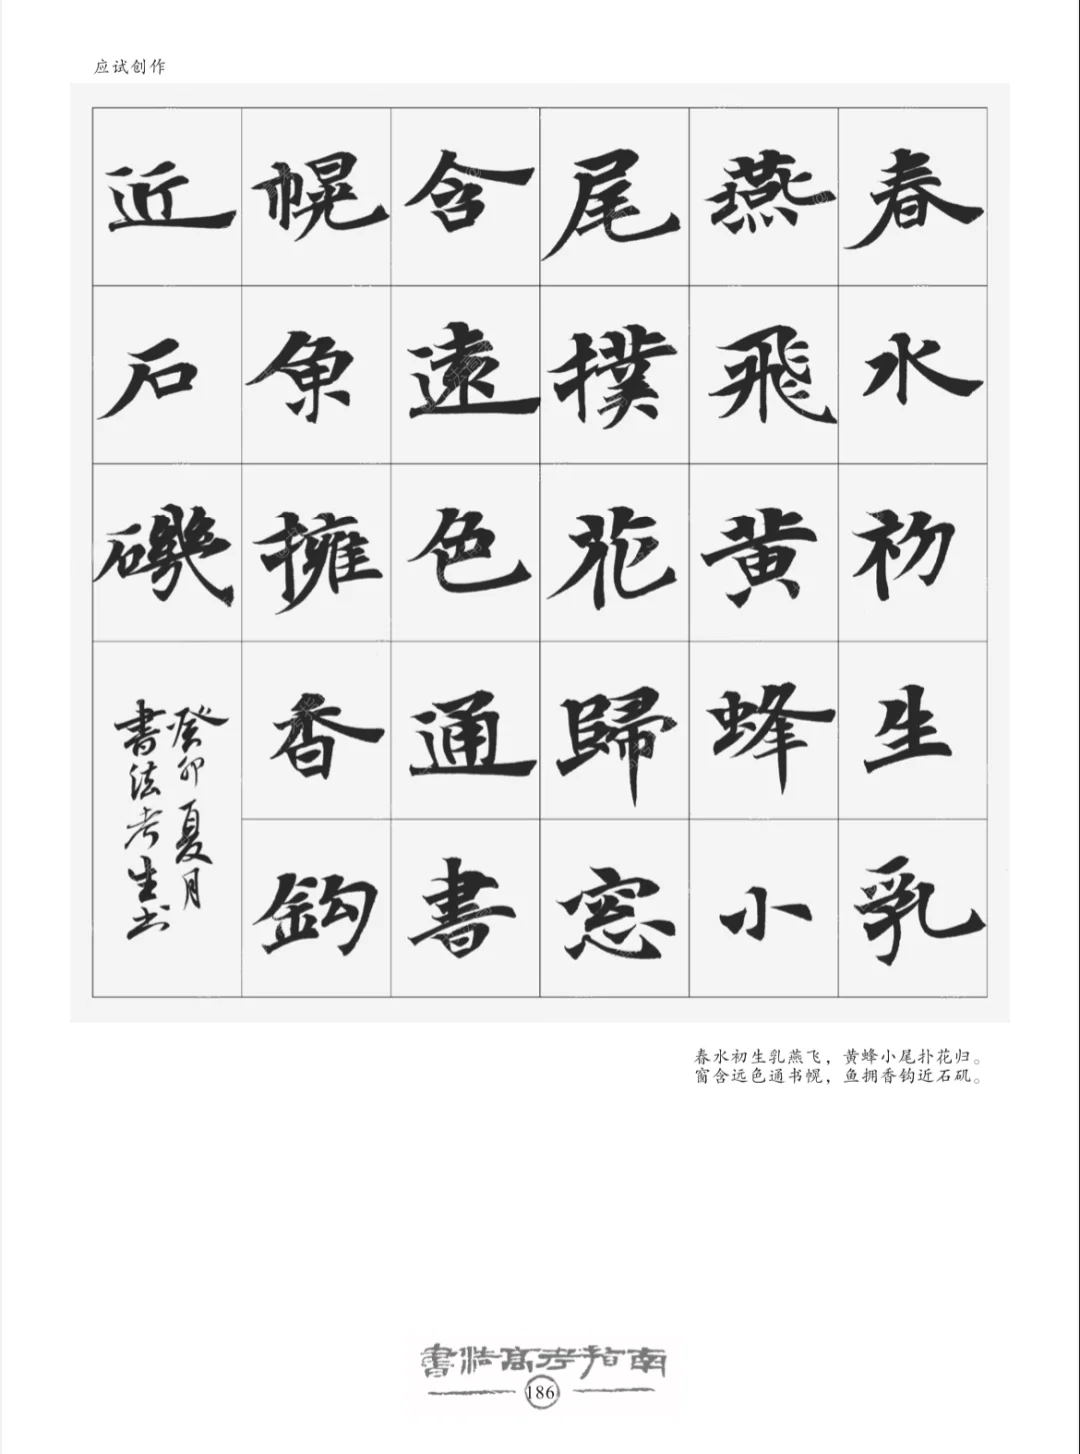 应试创作
春水初生乳
燕飛黄蜂小
尾撲花歸窓
含遠色通書
幌魚擁香鈎
近石磯
癸卯夏月
書法考生书
春水初生乳燕飞，黄蜂小尾扑花归。
窗含远色通书幌，鱼拥香钩近石矶。
書法高考指南
186